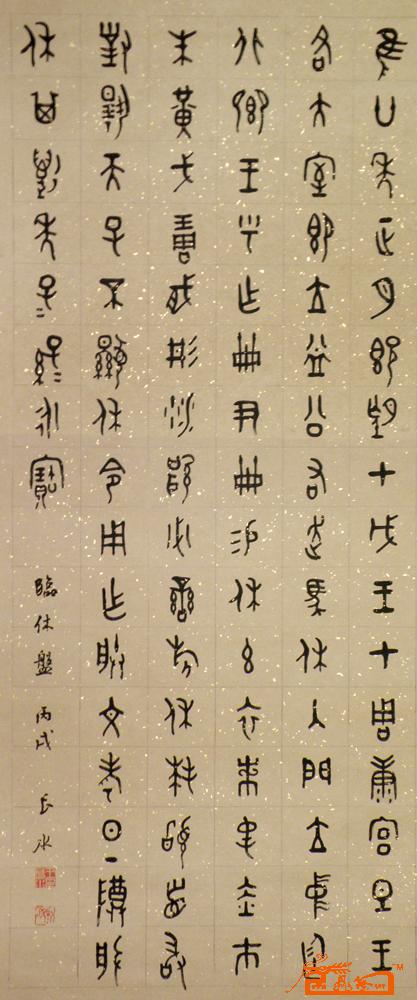 隹廿年正月既望甲戌王才周康宮旦王
各大室即立益公右走馬休入門立中廷
北鄉王乎乍冊尹冊易休玄衣黹屯赤市
朱黃戈琱㦸彤沙厚必䜌㫃休拜䭫首敢
對揚天子不顯休令用乍朕文考日丁尊般
休其萬年子=孫=永寶
臨休盤 丙戌 長水